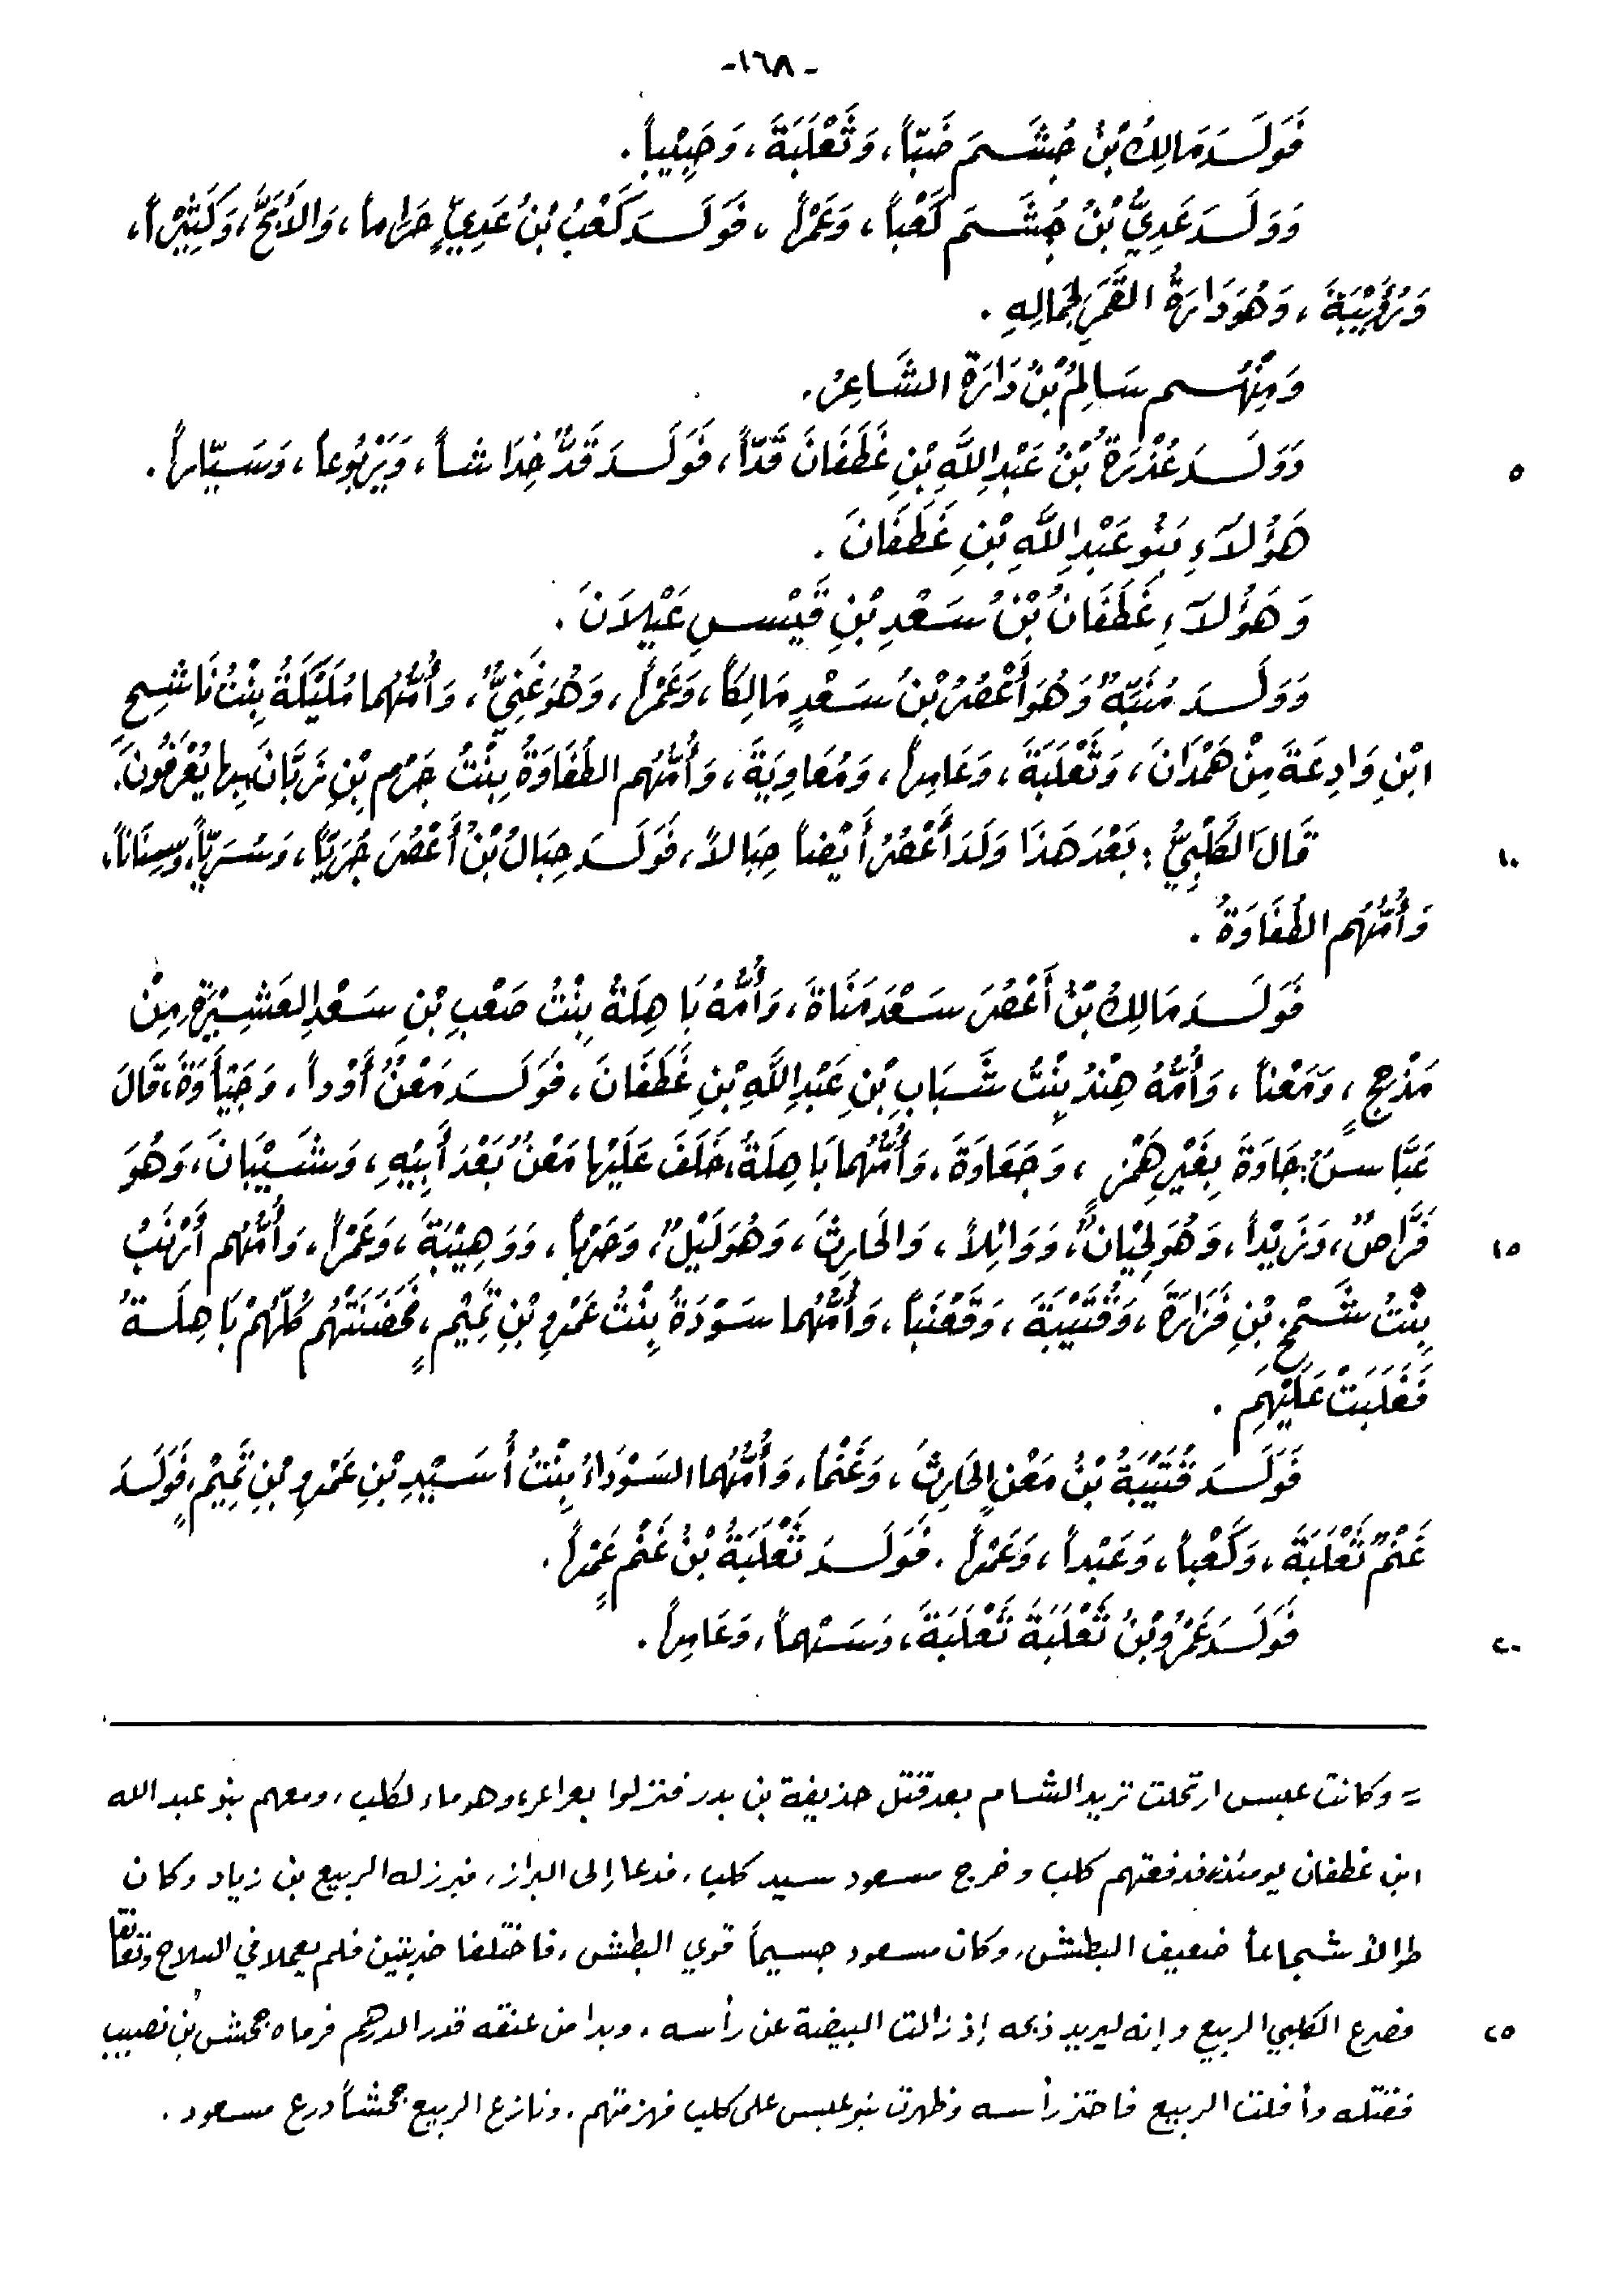 -١٦٨-
فَوَلَدَ مَالِكُ بْنُ جُشَمَ ضَبّاً، وَثَعْلَبَةَ، وَحَبِيْباً.
وَوَلَدَ عَدِيُّ بْنُ جُشَمَ كَعْباً، وَعَمْراً، فَوَلَدَ كَعْبُ بْنُ عَدِيٍّ حَرَاماً، وَالأَبَحَّ، وَكَثِيْراً،
وَرُؤَيْبَةَ، وَهُوَ دَارَةُ القَمَرِ لِجَمَالِهِ.
وَمِنْهُم سَالِمُ بْنُ دَارَةَ الشَّاعِرُ.
٥ وَوَلَدَ عُذْرَةُ بْنُ عَبْدِ اللَّهِ بْنِ غَطَفَانَ قَدّاً، فَوَلَدَ قَدٌّ خِدَاشاً، وَيَرْبُوعاً، وَسَيَّاراً.
هَؤُلَاءِ بَنُو عَبْدِ اللَّهِ بْنِ غَطَفَانَ.
وَهَؤُلَاءِ غَطَفَانُ بْنُ سَعْدِ بْنِ قَيْسِ عَيْلَانَ.
وَوَلَدَ مُنَبِّهٌ وَهُوَ أَعْصُرُ بْنُ سَعْدٍ مَالِكاً، وَعَمْراً، وَهُوَ غَنِيٌّ، وَأُمُّهُما مُلَيْكَةُ بِنْتُ نَاشِحِ
ابْنِ وَادِعَةَ مِنْ هَمْدَانَ، وَثَعْلَبَةَ، وَعَامِراً، وَمُعَاوِيَةَ، وَأُمُّهُم الطُّفَاوَةُ بِنْتُ جَرْمِ بْنِ رَبَّانَ بِها يُعْرَفُونَ.
١٠ قَالَ الكَلْبِيُّ: بَعْدَ هَذَا وَلَدَ أَعْصُرُ أَيْضاً حِبَالاً، فَوَلَدَ حِبَالُ بْنُ أَعْصُرَ جُرَيّاً، وَسُرَيّاً، وَسِنَاناً،
وَأُمُّهُم الطُّفَاوَةُ.
فَوَلَدَ مَالِكُ بْنُ أَعْصُرَ سَعْدَ مَنَاةَ، وَأُمُّهُ بَاهِلَةُ بِنْتُ صَعْبِ بْنِ سَعْدِ العَشِيْرَةِ مِنْ
مَذْحِجٍ، وَمَعْناً، وَأُمُّهُ هِنْدُ بِنْتُ شَبَابِ بْنِ عَبْدِ اللَّهِ بْنِ غَطَفَانَ، فَوَلَدَ مَعْنٌ أَوْداً، وَجِئَاوَةَ، قَالَ
عَبَّاسٌ: جَاوَةَ بِغَيْرِ هَمْزٍ، وَجَعَاوَةَ، وَأُمُّهُما بَاهِلَةُ، خَلَفَ عَلَيْها مَعْنٌ بَعْدَ أَبِيْهِ، وَشَيْبَانَ، وَهُوَ
١٥ فَرَّاصٌ، وَزَيْداً، وَهُوَ لِحْيَانُ، وَوَائِلاً، وَالحَارِثَ، وَهُوَ لَيْلٌ، وَحَرْباً، وَوَهِيْبَةَ، وَعَمْراً، وَأُمُّهُم أَرْنَبُ
بِنْتُ شَمْخِ بْنِ فَزَارَةَ، وَقُتَيْبَةَ، وَقَعْنَباً، وَأُمُّهُما سَوْدَةُ بِنْتُ عَمْرِو بْنِ تَمِيْمٍ، فَحَضَنَتْهُم كُلَّهُمْ بَاهِلَةُ
فَغَلَبَتْ عَلَيْهِم.
فَوَلَدَ قُتَيْبَةُ بْنُ مَعْنٍ الحَارِثَ، وَغَنْماً، وَأُمُّهُما السَوْدَاءُ بِنْتُ أُسَيْدِ بْنِ عَمْرِو بْنِ تَمِيْمٍ، فَوَلَدَ
غَنْمٌ ثَعْلَبَةَ، وَكَعْباً، وَعَبْداً، وَعَمْراً. فَوَلَدَ ثَعْلَبَةُ بْنُ غَنْمٍ عَمْراً.
٢٠ فَوَلَدَ عَمْرُو بْنُ ثَعْلَبَةَ ثَعْلَبَةَ، وَسَهْماً، وَعَامِراً.
= وكانت عبس ارتحلت تريد الشام بعد قتل حذيفة بن بدر فنزلوا بعراعر، وهو ماء لكلب، ومعهم بنو عبد الله
ابن غطفان يومئذ، فدفعتهم كلب وخرج مسعود سيد كلب، فدعا إلى البراز، فبرز له الربيع بن زياد وكان
طوالاً شجاعاً ضعيف البطش، وكان مسعود جسيماً قوي البطش، فاختلفا ضربتين فلم يعملا في السلاح وتعانقا
٢٥ فصرع الكلبي الربيع وإنه ليريد ذبحه إذ زالت البيضة عن رأسه، وبدا من عنقه قدر الدرهم فرماه جحش بن نصيب
فقتله وأفلت الربيع فاحتز رأسه وظهرت بنو عبس على كلب فهزمتهم. ونازع الربيع جحشاً درع مسعود.